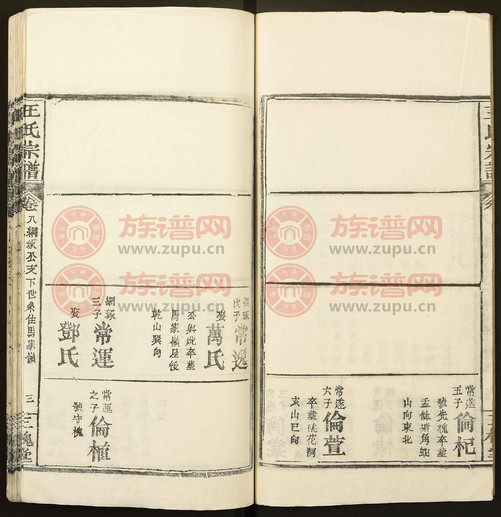 王氏宗譜
常逵
五子
倫杞
號先槐卒葬
孟缽衕角蛇
山向東北
常逵
六子
倫萱
亥山巳向
綱琢
次子
常逸
娶
萬氏
公與妣卒葬
馬家嶺屋後
乾山巽向
綱琢
三子
常運
娶
鄧氏
常運
之子
倫植
號守槐
王氏宗譜
卷
八綱琢公支下世系佐馬家嶺
三
三槐堂
族谱网
www.zupu.cn
族谱网
www.zupu.cn
族谱网
www.zupu.cn
族谱网
www.zupu.cn